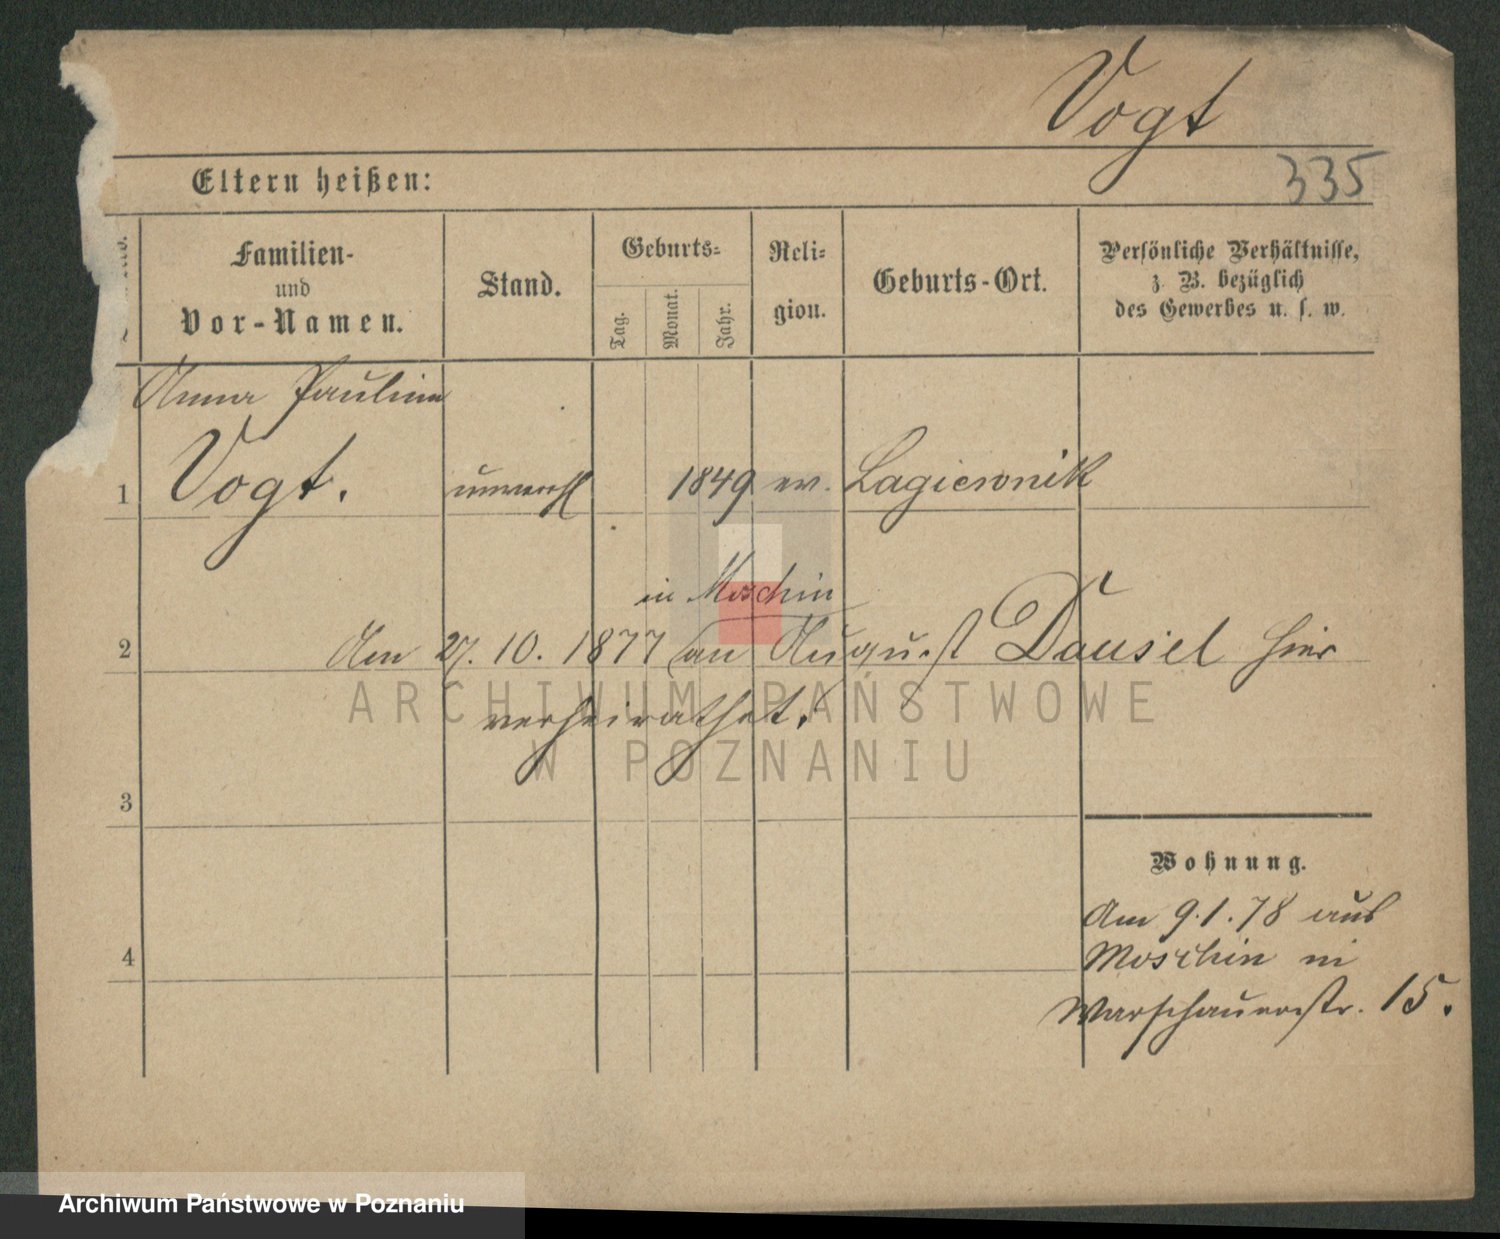 Vogt
335
Eltern heißen:
Familien-
und
Vor-Namen.
Stand.
Geburts-
Tag.
Monat.
Jahr.
Reli-
gion.
Geburts-Ort.
Persönliche Verhältnisse,
z. B. bezüglich
des Gewerbes u. s. w.
Anna Pauline
1 Vogt. unverehl 1849 ev. Lagiewnik
in Moschin
2 Am 27. 10. 1877 an August Dausel hier
verheirathet.
3
Wohnung.
Am 9.1.78 aus
4 Moschin in
Warschauerstr. 15.
ARCHIWUM PAŃSTWOWE
W POZNANIU
Archiwum Państwowe w Poznaniu